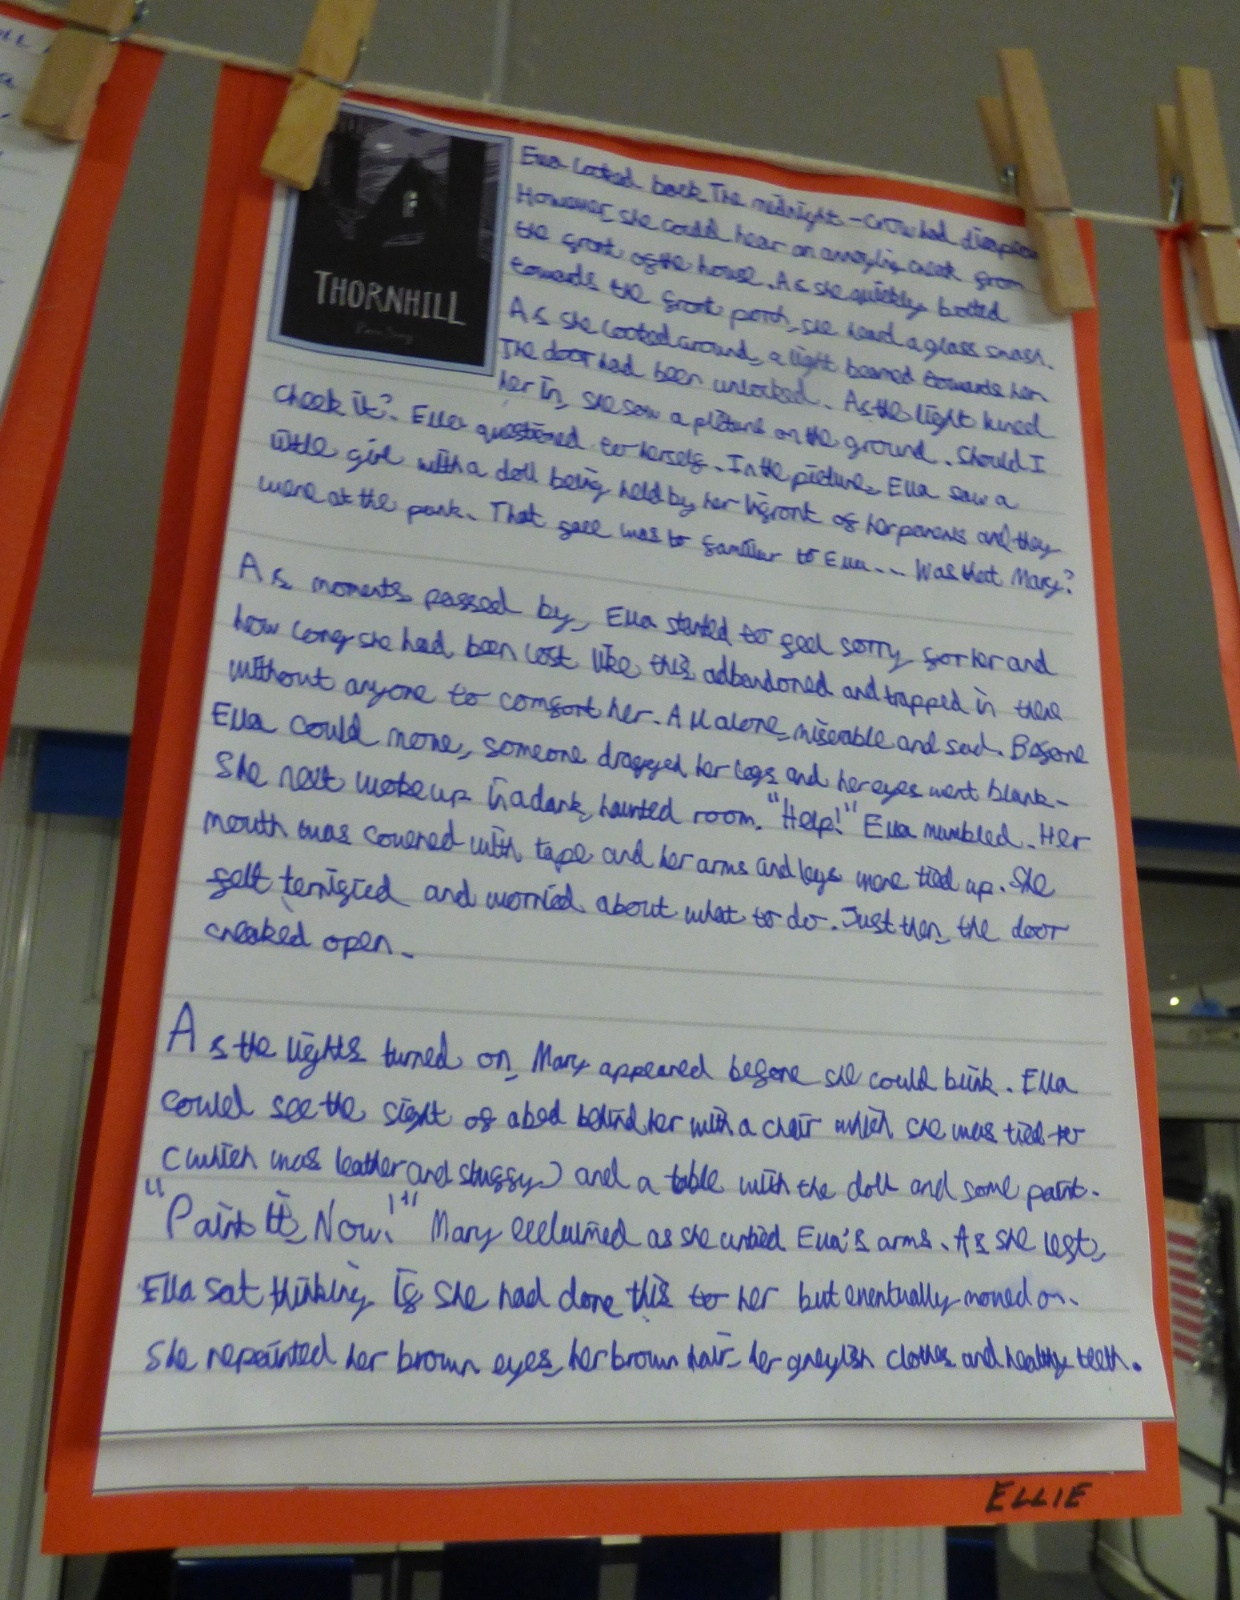 THORNHILL
Ella looked back. The midnight-crow had
However, she could hear an annoying creak from
the front of the house. As she quickly bolted
towards the front porch, she heard a glass smash.
As she looked around, a light beamed towards her.
The door had been unlocked. As the light lured
her in, she saw a picture on the ground. Should I
check it? Ella questioned to herself. In the picture, Ella saw a
little girl with a doll being held by her infront of her parents and they
were at the park. That face was to familiar to Ella... Was that Mary?
As moments passed by, Ella started to feel sorry for her and
how long she had been lost like this, adbandoned and trapped in there
without anyone to comfort her. All alone, miserable and sad. Before
Ella could move, someone dragged her legs and her eyes went blank.
She next woke up in a dark, haunted room. "Help!" Ella mumbled. Her
mouth was covered with tape and her arms and legs were tied up. She
felt terrified and worried about what to do. Just then, the door
creaked open.
As the lights turned on, Mary appeared before she could blink. Ella
could see the sight of a bed behind her with a chair which she was tied to
(which was leather and stuffy) and a table with the doll and some paint.
"Paint it, Now!" Mary exclaimed as she untied Ella's arms. As she left,
Ella sat thinking if she had done this to her but eventually moved on.
She repainted her brown eyes, her brown hair, her greyish clothes and healthy teeth.
ELLIE